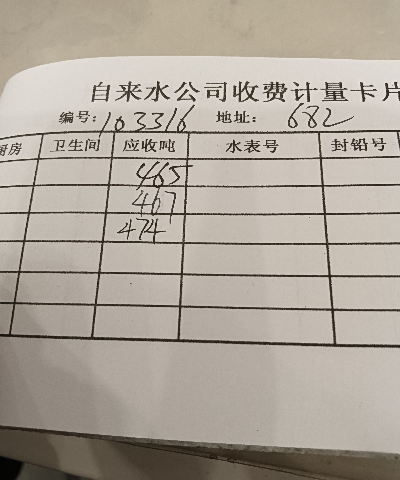 自来水公司收费计量卡片
编号:103316 地址: 682
厨房 卫生间 应收吨 水表号 封铅号
465
467
474